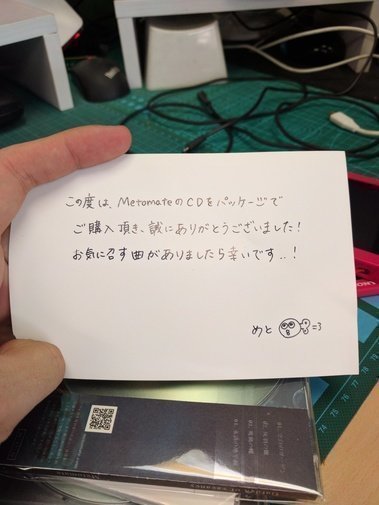 この度は、MetomateのCDをパッケージで
ご購入頂き、誠にありがとうございました!
お気に召す曲がありましたら幸いです..!
めと =3
74
75
76
77
78
Metomate